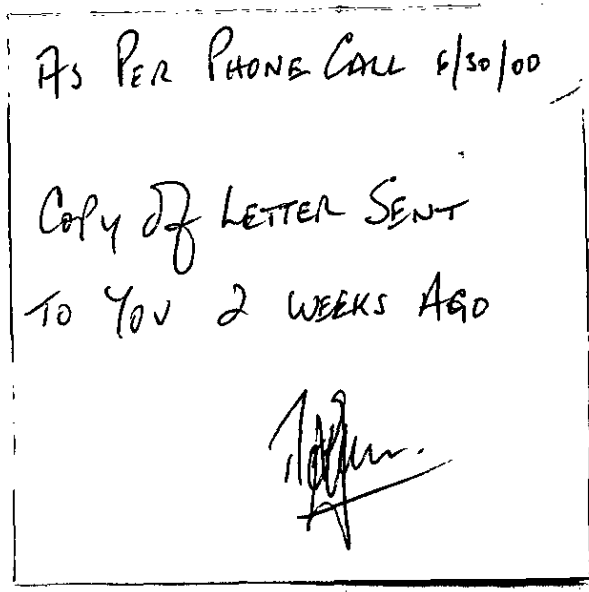 As Per Phone Call 6/30/00
Copy Of Letter Sent
To You 2 Weeks Ago